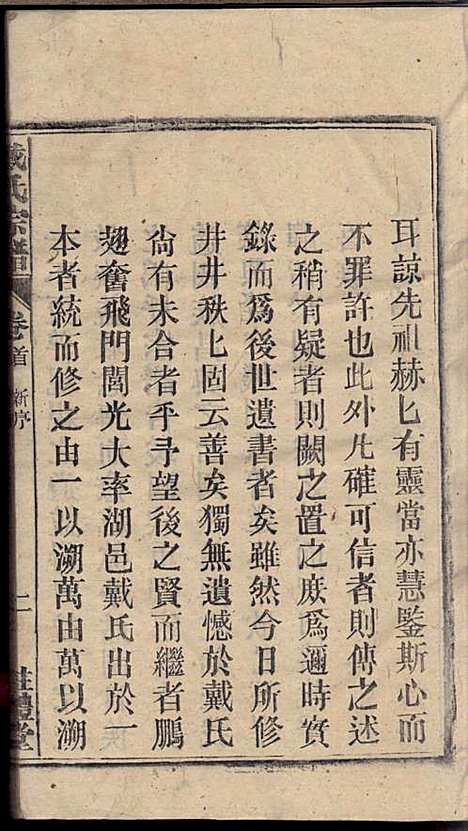 耳諒先祖赫匕有靈當亦慧鑒斯心而
不罪許也此外凡確可信者則傳之述
之稍有疑者則闕之置之庶爲邇時實
錄而爲後世遺書者矣雖然今日所修
井井秩匕固云善矣獨無遺憾於戴氏
尙有未合者乎予望後之賢而繼者鵬
翅奮飛門閭光大率湖邑戴氏出於一
本者統而修之由一以溯萬由萬以溯
戴氏宗譜
卷首
新序
二